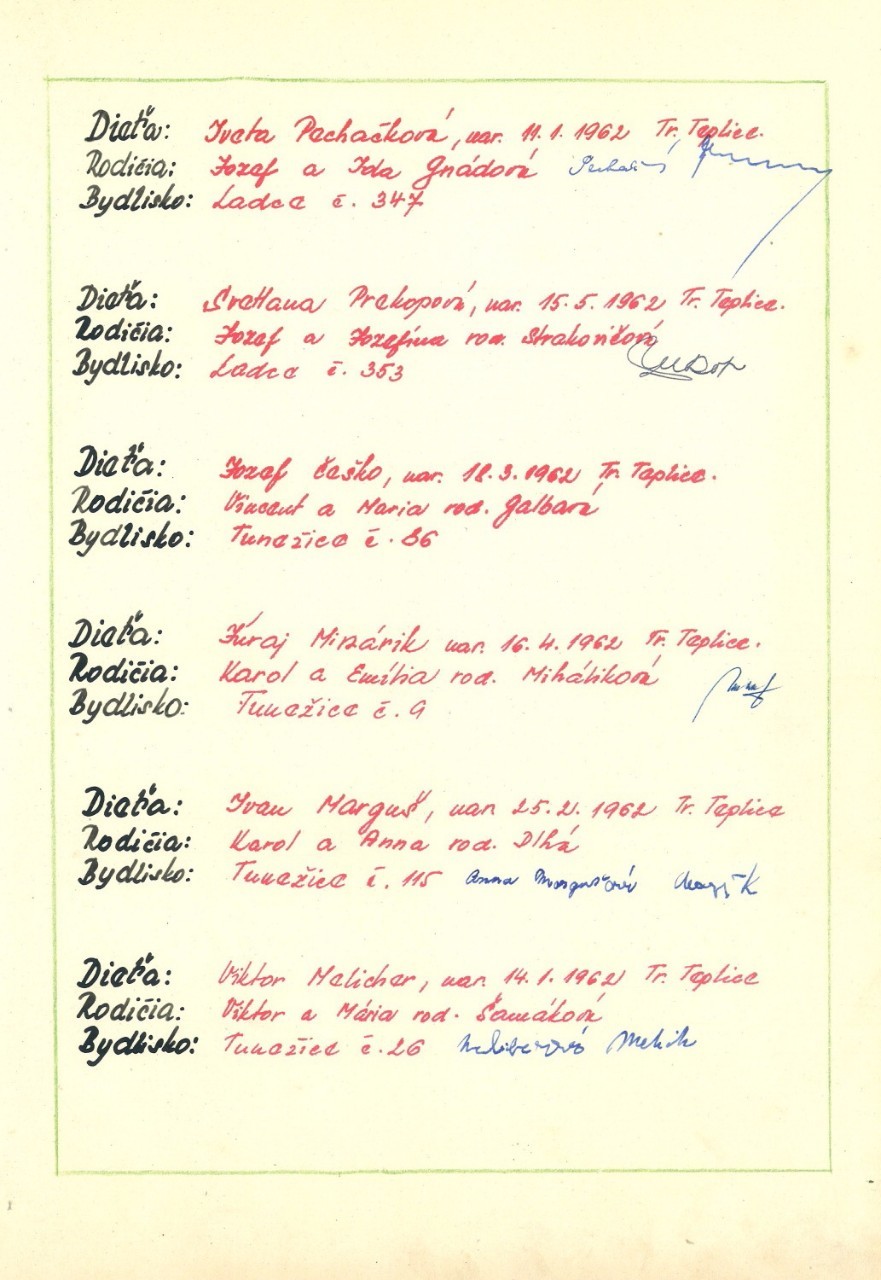 Dieťa: Iveta Pechačková, nar. 11.1.1962 Tr. Teplice.
Rodičia: Jozef a Ida Gnádová
Bydlisko: Ladce č. 347
Dieťa: Svetlana Prekopová, nar. 15.5.1962 Tr. Teplice.
Rodičia: Jozef a Jozefína rod. Strakovičová
Bydlisko: Ladce č. 353
Dieťa: Jozef Češko, nar. 18.3.1962 Tr. Teplice.
Rodičia: Vincent a Maria rod. Galbavá
Bydlisko: Tunežice č. 86
Dieťa: Juraj Misárik nar. 16.4.1962 Tr. Teplice.
Rodičia: Karol a Emília rod. Miháliková
Bydlisko: Tunežice č. 9
Dieťa: Ivan Marguš, nar. 25.2.1962 Tr. Teplice
Rodičia: Karol a Anna rod. Dlhá
Bydlisko: Tunežice č. 115 Anna Margušová
Dieťa: Viktor Melicher, nar. 14.1.1962 Tr. Teplice
Rodičia: Viktor a Mária rod. Šamáková
Bydlisko: Tunežice č. 26